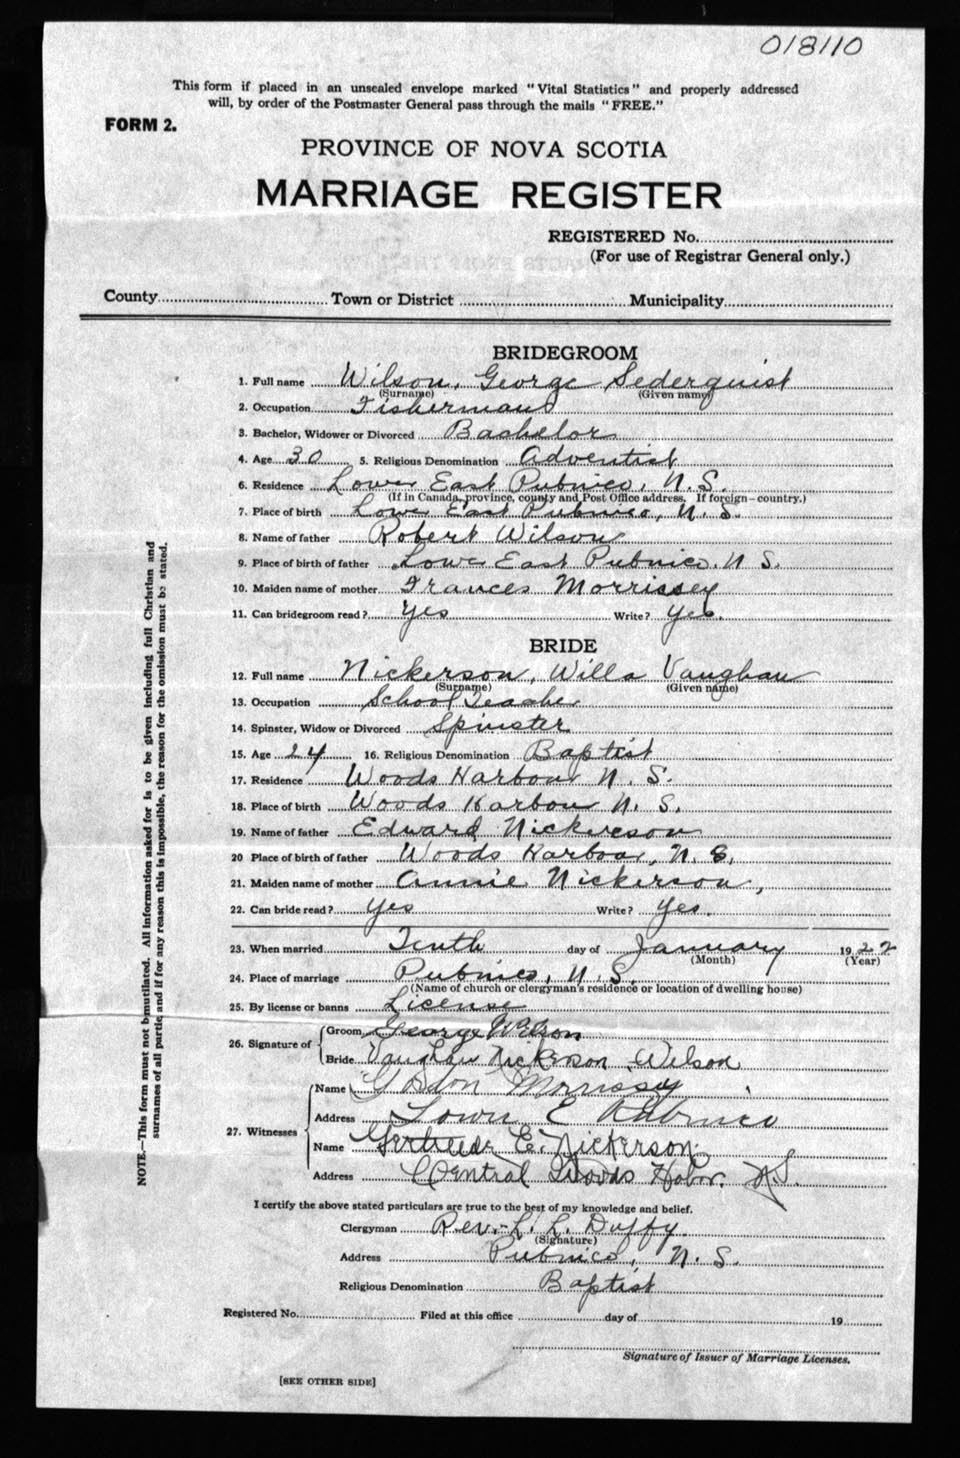 018110
This form if placed in an unsealed envelope marked "Vital Statistics" and properly addressed
will, by order of the Postmaster General pass through the mails "FREE."
FORM 2.
PROVINCE OF NOVA SCOTIA
MARRIAGE REGISTER
REGISTERED No.
(For use of Registrar General only.)
County Town or District Municipality
BRIDEGROOM
1. Full name Wilson, George Sederquist
(Surname) (Given name)
2. Occupation Fisherman
3. Bachelor, Widower or Divorced Bachelor
4. Age 30 5. Religious Denomination Adventist
6. Residence Lower East Pubnico, N.S.
(If in Canada, province, county and Post Office address. If foreign—country.)
7. Place of birth Lower East Pubnico, N.S.
8. Name of father Robert Wilson
9. Place of birth of father Lower East Pubnico, N S.
10. Maiden name of mother Frances Morrissey
11. Can bridegroom read? Yes Write? Yes.
BRIDE
12. Full name Nickerson, Willa Vaughan
(Surname) (Given name)
13. Occupation School Teacher
14. Spinster, Widow or Divorced Spinster
15. Age 24 16. Religious Denomination Baptist
17. Residence Woods Harbour N. S.
18. Place of birth Woods Harbour N. S.
19. Name of father Edward Nickerson
20 Place of birth of father Woods Harbour, N. S.
21. Maiden name of mother Annie Nickerson,
22. Can bride read? Yes Write? Yes.
23. When married Tenth day of January 1922
(Month) (Year)
24. Place of marriage Pubnico, N. S.
(Name of church or clergyman's residence or location of dwelling house)
25. By license or banns License
26. Signature of Groom George Wilson
Bride Vaughan Nickerson Wilson
27. Witnesses Name Gordon Morrissy
Address Lower E Pubnico
Name Gertrude E. Nickerson
Address Central Woods Habor. N.S.
I certify the above stated particulars are true to the best of my knowledge and belief.
Clergyman Rev. L. L. Duffy
(Signature)
Address Pubnico, N. S.
Religious Denomination Baptist
Registered No. Filed at this office day of 19
Signature of Issuer of Marriage Licenses.
[SEE OTHER SIDE]
NOTE.—This form must not be mutilated. All information asked for is to be given including full Christian and
surnames of all parties and if for any reason this is impossible, the reason for the omission must be stated.